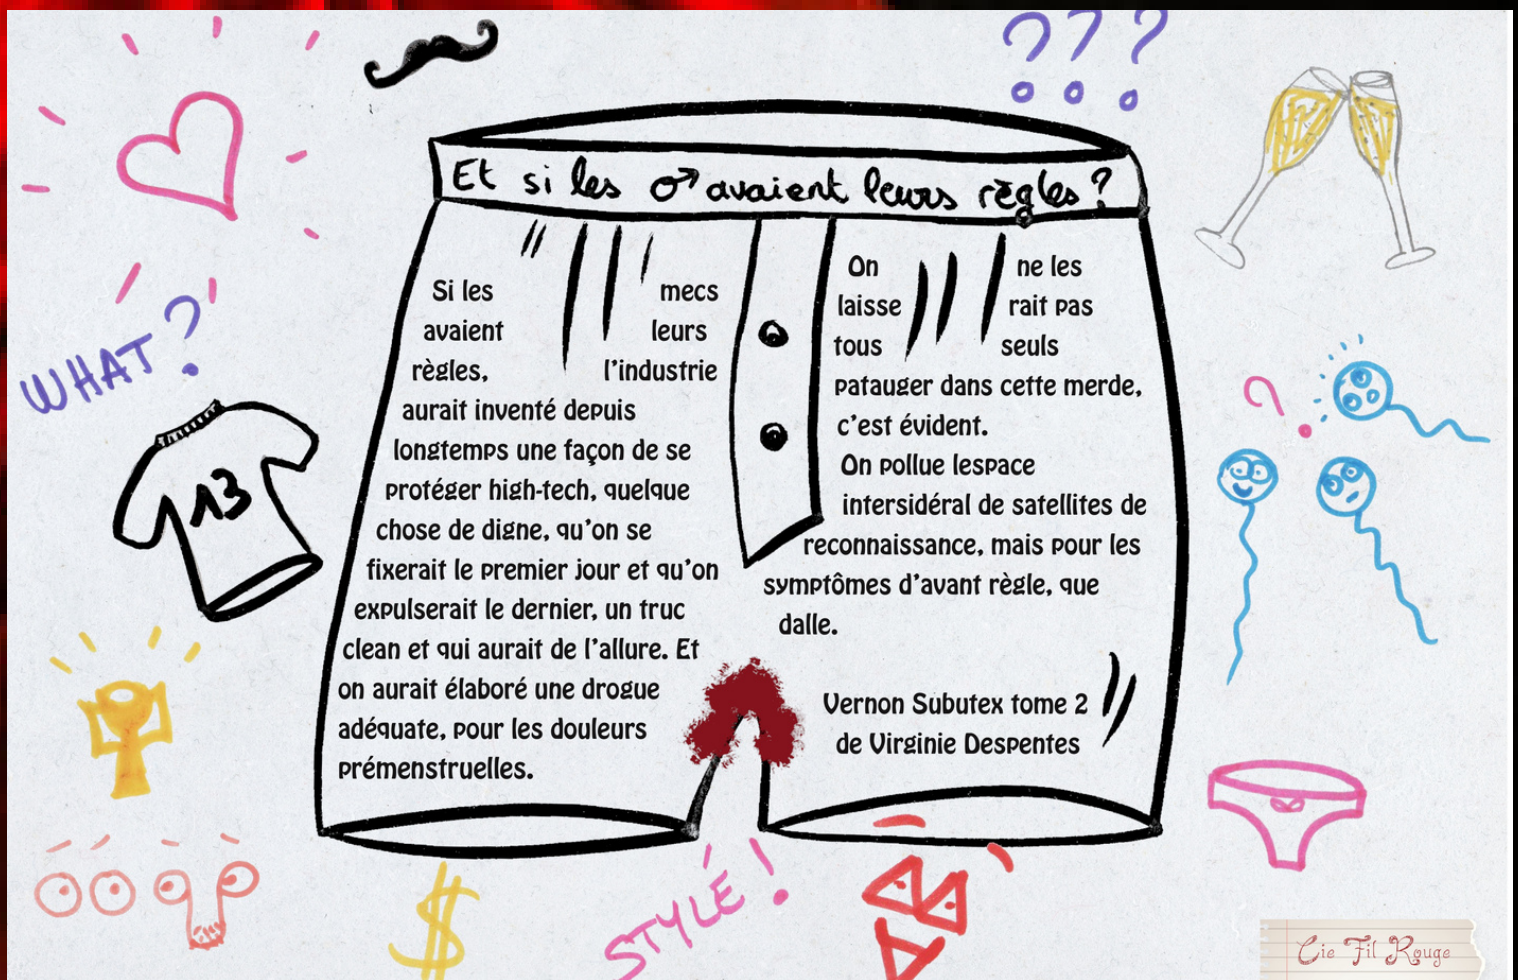 ? ? ?
Et si les ♂ avaient leurs règles ?
WHAT ?
13
Si les mecs
avaient leurs
règles, l'industrie
aurait inventé depuis
longtemps une façon de se
protéger high-tech, quelque
chose de digne, qu'on se
fixerait le premier jour et qu'on
expulserait le dernier, un truc
clean et qui aurait de l'allure. Et
on aurait élaboré une drogue
adéquate, pour les douleurs
prémenstruelles.
On ne les
laisse rait pas
tous seuls
patauger dans cette merde,
c'est évident.
On pollue lespace
intersidéral de satellites de
reconnaissance, mais pour les
symptômes d'avant règle, que
dalle.
Vernon Subutex tome 2
de Virginie Despentes
?
$
STYLÉ !
Cie Fil Rouge